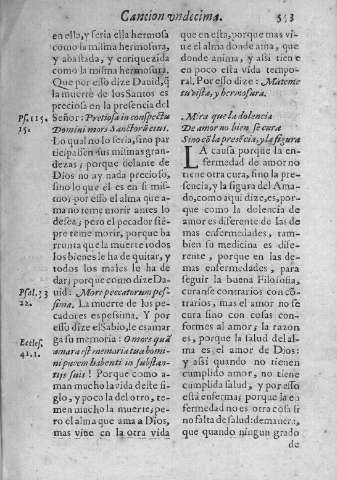 Cancion vndecima. 543
en ella, y seria ella hermosa
como la misma hermosura,
y abastada, y enriquezida
como la misma hermosura.
Que por esso dize Dauid, q̃
la muerte de los Santos es
preciosa en la presencia del
Señor: Pretiosa in conspectu
Domini mors Sanctorũ eius.
Lo qual no seria, sino par
ticipassen sus mismas gran-
dezas; porque delante de
Dios no ay nada precioso,
sino lo que èl es en si mis-
mo; por esso el alma que a-
ma no teme morir antes lo
dessea; pero el pecador siẽ-
pre teme morir, porque ba
rrunta que la muerte todos
los bienes le ha de quitar, y
todos los males le ha de
dar; porque como dize Da-
uid: Mors peccatorum pes-
sima. La muerte de los pe-
cadores es pessima. Y por
esso dize el Sabio, le es amar
ga su memoria: O mors quã
amara est memoria tua homi-
ni pacem habenti in substan-
tijs suis! Porque como a-
man mucho la vida deste si-
glo, y poco la del otro, te-
men mucho la muerte; pe-
ro el alma que ama a Dios,
mas viue en la otra vida
Ps. 115.
15.
Psal. 33
22.
Eccles.
41. 1.
que en esta, porque mas vi-
ue el alma donde ama, que
donde anima, y assi tiene
en poco esta vida tempo-
ral. Por esso dize: Mateme
tu vista, y hermosura.
Mira que la dolencia
De amor no bien se cura
Sino cõ la presẽcia, y la figura
LA causa porque la en-
fermedad de amor no
tiene otra cura, sino la pre-
sencia, y la figura del Ama-
do, como aqui dize, es, por-
que como la dolencia de
amor es diferente de las de
mas enfermedades, tam-
bien su medicina es dife-
rente, porque en las de-
mas enfermedades, para
seguir la buena Filosofia,
curanse contrarios con cõ-
trarios, mas el amor no se
cura sino con cosas con-
formes al amor; la razon
es, porque la salud del al-
ma es el amor de Dios:
y assi quando no tienen
cumplido amor, no tiene
cumplida salud, y por esso
està enferma; porque la en
fermedad no es otra cosa si
no falta de salud: de manera,
que quando ningun grado
de